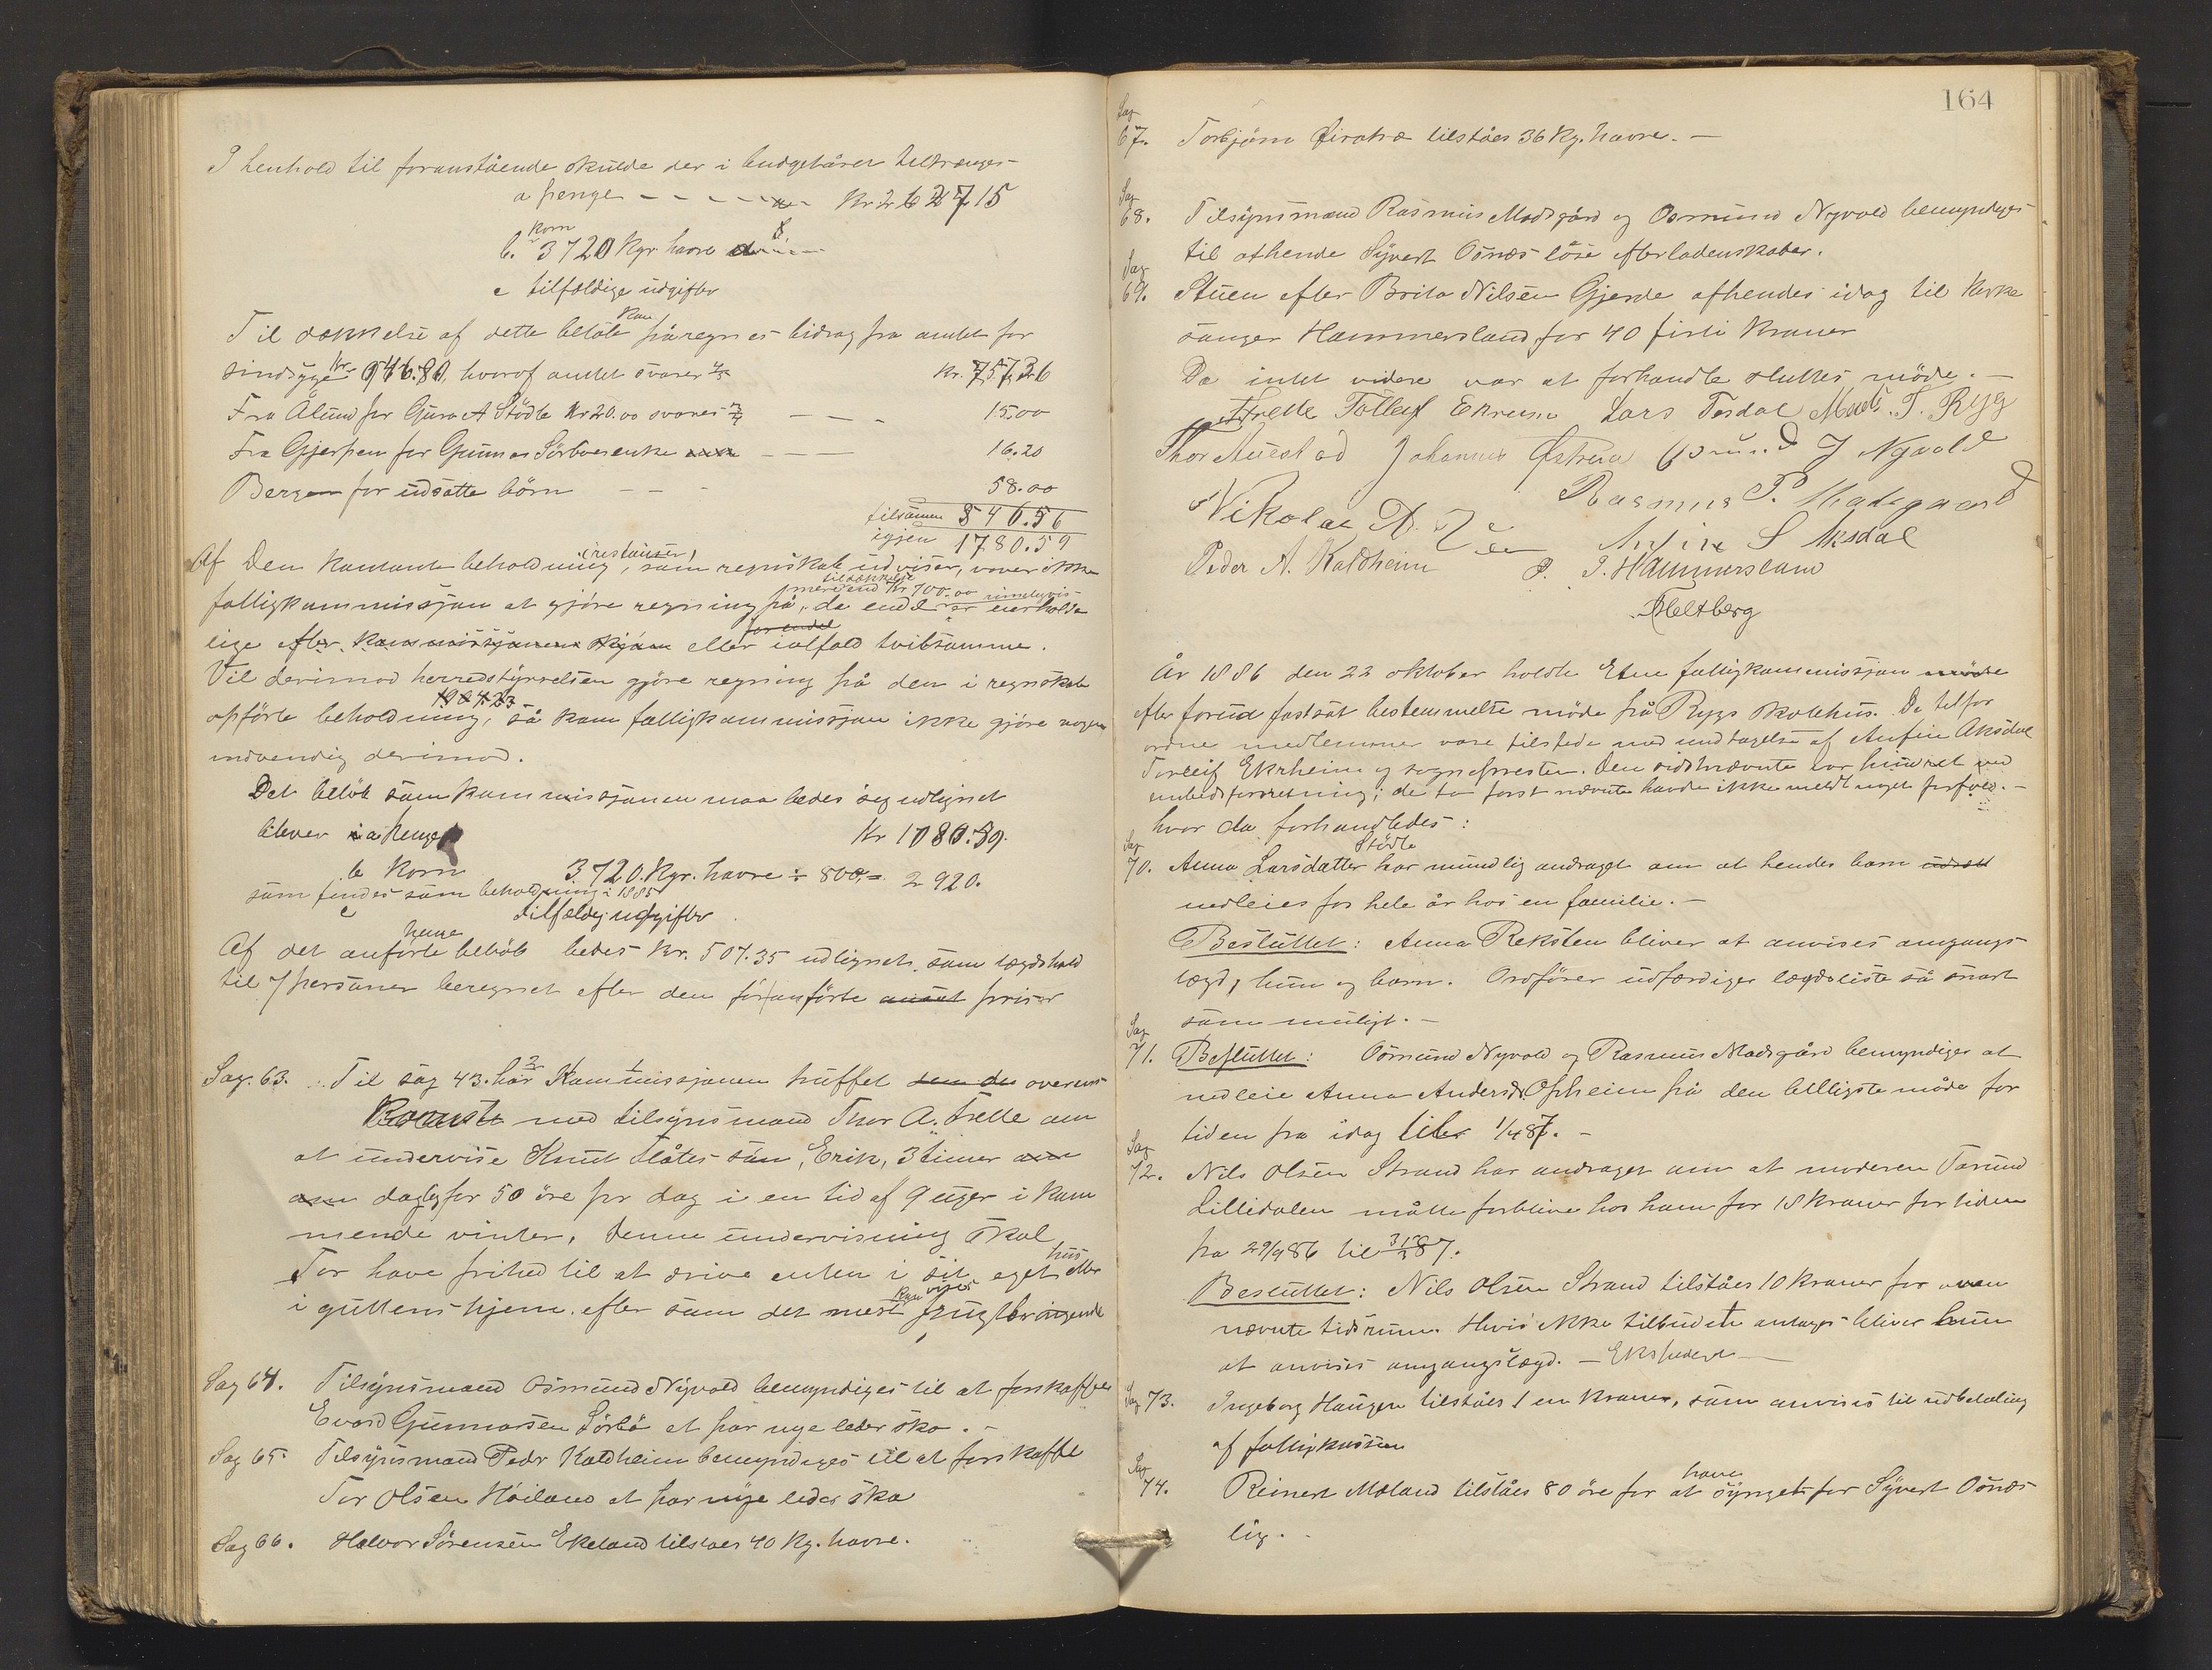 I henhold til foranstående skulde der i budgetåret tiltrænges
a penge - - - - - Kr 2627 15
korn
b. 3720 Kgr havre
c tilfældige udgifter
kan
Til dækkelse af dette beløb påregnes bidrag fra amtet for
sindsyge Kr 946.80, hvoraf amtet svarer 4/5 Kr. 757.36
Fra Ålund for Guro A Stødle Kr 20.00 svares 3/4 - - 15.00
Fra Gjerpen for Gunnar Sørbøs enke - - 16.20
Bergen for udsatte børn - - - 58.00
tilsamen 846.56
igjen 1780.59
(restanser)
Af Den kontante beholdning, som regnskab udviser, vover ikke
til dækkelse
mere end Kr 700.00 rimeligvis
fattigkommissjon at gjøre regning på, da endel er uerholde
for endel
lige efter kommissjonens skjøn eller ialfald tvilsomme.
Vil derimod herredstyrelsen gjøre regning på den i regnskab
opførte beholdning, så kan fattigkommissjon ikke gjøre nogen
indvending derimod.
Det beløb som kommissjonen maa bedes seg udlignet
bliver i a penge Kr 1080.59.
b Korn 3720 Kgr. havre ÷ 800 = 2920.
som findes som beholdning i 1885
c tilfældig udgifter
penge
Af det anførte beløb bedes Kr. 507.35 udlignet som lægdshold
til 7 personer beregnet efter den foranførte ansat priser
Sag. 63. Til sag 43. har Kommissjonen truffet den du overens-
komst med tilsynsmand Thor A. Frette om
at undervise Knut Flåtes søn, Erik, 3 timer om
om daglig for 50 øre pr dag i en tid af 9 uger i kom
mende vinter, denne undervisning skal
hus
Tor have frihed til at drive enten i sit eget eller
kan vises
i guttens hjem. efter som det mest frugtbringende
Sag 64. Tilsynsmand Osmund Nyvold bemyndiges til at forskaffes
Evard Gunnarsen Sørbø et par nye leder sko. -
Sag 65. Tilsynsmand Peder Kaldheim bemyndiges til at forskaffe
Tor Olsen Høiland et par nye leder sko
Sag 66. Halvor Sørensen Ekeland tilstaes 40 Kg. havre.
164
Sag
67. Torbjørn tilståes 36 Kg. havre. -
Sag
68. Tilsynsmænd Rasmus Madsgård og Osmund Nyvold bemyndiges
til afhende Syvert Osnes løse efterladenskaber.
Sag
69. Stuen efter Brita Nilsen Gjerde afhendes idag til kirke
sanger Hammersland for 40 firti kroner
Da intet videre var at forhandle sluttes møde. -
Frette Tolleif Ekrheim Lars Tesdal Mads T. Ryg
Thor Auestad Johannes Østrem Osmund J Nyvold
Nikolai Rasmus P. Madsgaard
Peder A. Kaldheim Anfin S Aksdal
P. J. Hammersland
Heltberg
År 1886 den 22 oktober holdte Etne fattigkommissjon møde
efter forud fastsat bestemmelse møde på Rygs skolehus. De telfor
ordne medlemmer vare tilstede med undtagelse af Anfin Aksdal
Torleif Ekrheim og sognepresten. Den sidstnævnte var hindret ved
embedsforretning; de to først nævnte havde ikke meldt noget forfald. -
hvor da forhandledes:
Stødle
Sag
70. Anna Larsdatter har mundlig andraget om at hendes barn udsatt
nedleies for hele år hos en familie. -
Besluttet: Anna Reksten bliver at anvises omgangs-
lægd, hun og barn. Ordfører udfærdiger lægdsliste så snart
som muligt. -
Sag
71. Besluttet: Osmund Nyvold og Rasmus Madsgård bemyndiges at
nedleie Anna Andersd. Opheim på den billigste måde for
tiden fra idag til 1/4 87. -
Sag
72. Nils Olsen Strand har andraget om at moderen Torund
Lillidalen måtte forblive hos ham for 18 kroner for tiden
fra 29/9 86 til 31/3 87.
Besluttet: Nils Olsen Strand tilståes 10 kroner for oven
nævnte tidsrum. Hvis ikke tilbudet antages bliver hun
at anvises omgangslægd. - Ekspederet -
Sag 73. Ingeborg Haugen tilståes 1 en krone, som anvises til udbetaling
af fattigkassen
Sag
have
74. Reinert Mæland tilståes 80 øre for at synget for Syvert Osnes
lig. -